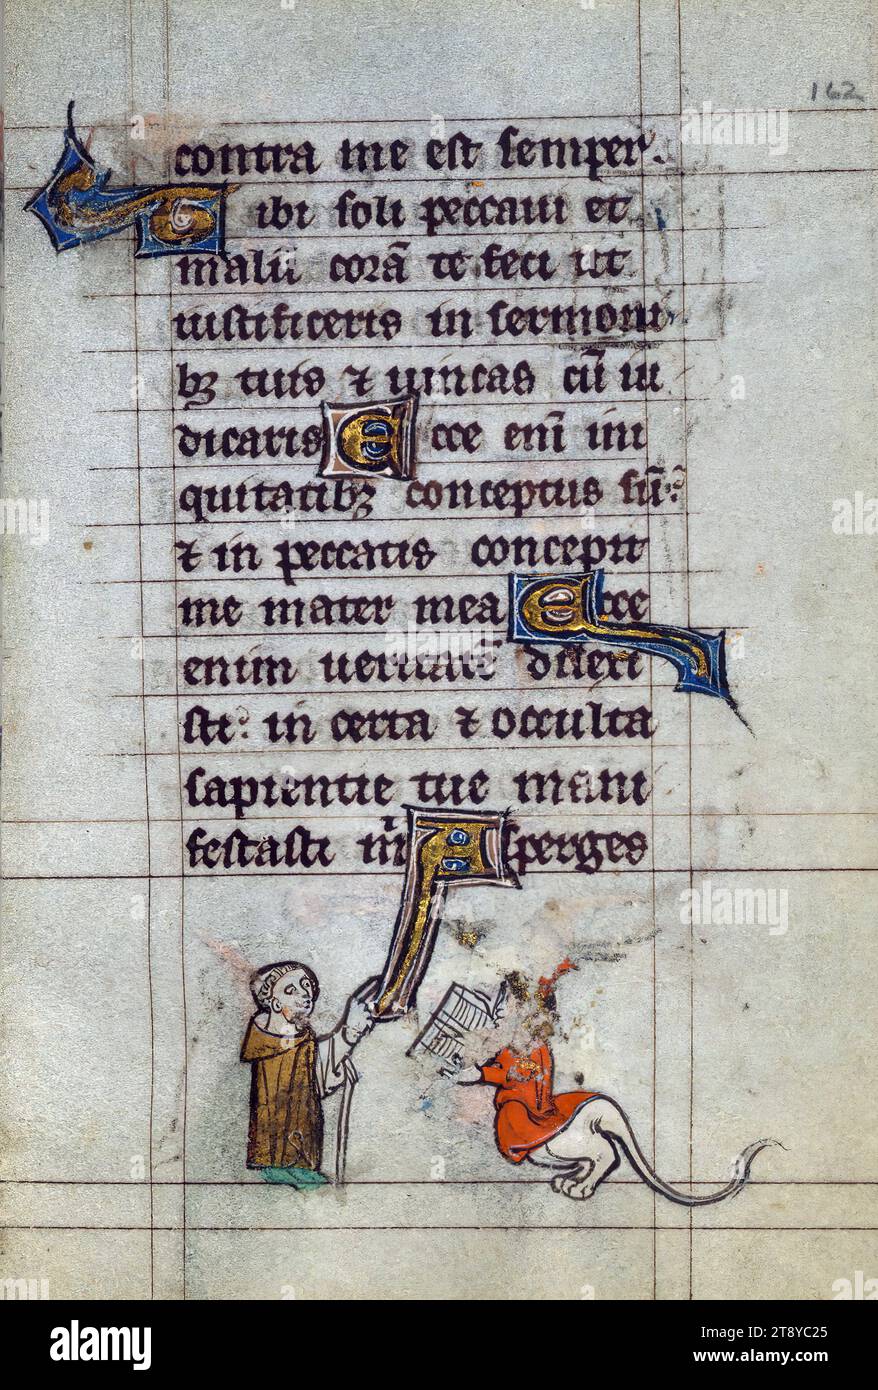 162
contra me est semper.
Tibi soli peccaui et
malū corā te feci ut
iustificeris in sermoni
bꝫ tuis ⁊ uincas cū iu
dicaris Ecce enī ini
quitatibꝫ conceptus sū:
⁊ in peccatis concepit
me mater mea Ecce
enim ueritatē dilexi
sti: in certa ⁊ occulta
sapientie tue mani
festasti m̍ Asperges
alamy
Image ID: 2T8YC25
www.alamy.com